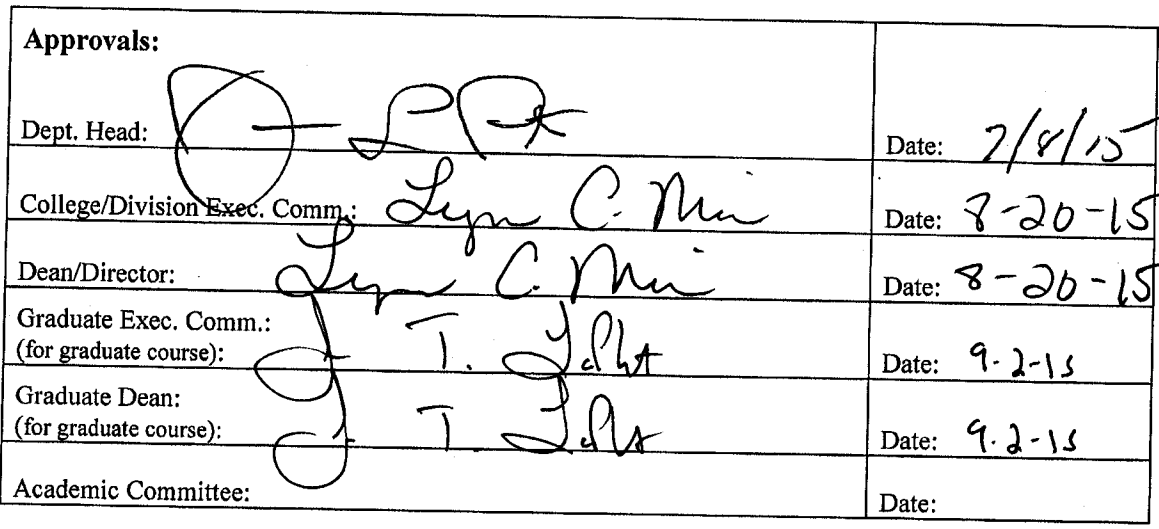 Approvals:
Dept. Head: Date: 7/8/15
College/Division Exec. Comm.: Lynn C. Date: 8-20-15
Dean/Director: Lynn C. Date: 8-20-15
Graduate Exec. Comm.:
(for graduate course): J T. Date: 9-2-15
Graduate Dean:
(for graduate course): J T. Date: 9-2-15
Academic Committee: Date: